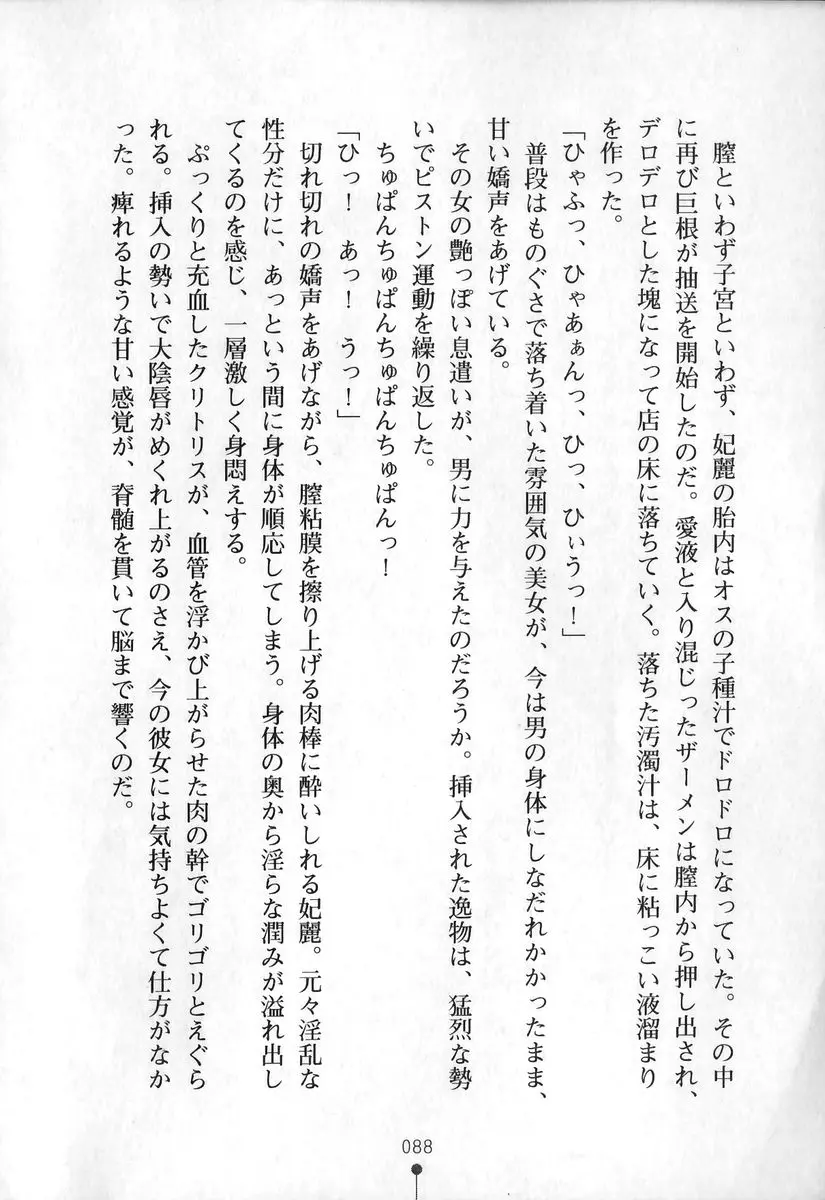 膣といわず子宮といわず、妃麗の胎内はオスの子種汁でドロドロになっていた。その中
に再び巨根が抽送を開始したのだ。愛液と入り混じったザーメンは膣内から押し出され、
デロデロとした塊になって店の床に落ちていく。落ちた汚濁汁は、床に粘っこい液溜まり
を作った。
「ひゃふっ、ひゃあぁんっ、ひっ、ひぃうっ！」
普段はものぐさで落ち着いた雰囲気の美女が、今は男の身体にしなだれかかったまま、
甘い嬌声をあげている。
その女の艶っぽい息遣いが、男に力を与えたのだろうか。挿入された逸物は、猛烈な勢
いでピストン運動を繰り返した。
ちゅぱんちゅぱんちゅぱんちゅぱんっ！
「ひっ！　あっ！　うっ！」
切れ切れの嬌声をあげながら、膣粘膜を擦り上げる肉棒に酔いしれる妃麗。元々淫乱な
性分だけに、あっという間に身体が順応してしまう。身体の奥から淫らな潤みが溢れ出し
てくるのを感じ、一層激しく身悶えする。
ぷっくりと充血したクリトリスが、血管を浮かび上がらせた肉の幹でゴリゴリとえぐら
れる。挿入の勢いで大陰唇がめくれ上がるのさえ、今の彼女には気持ちよくて仕方がなか
った。痺れるような甘い感覚が、脊髄を貫いて脳まで響くのだ。
088